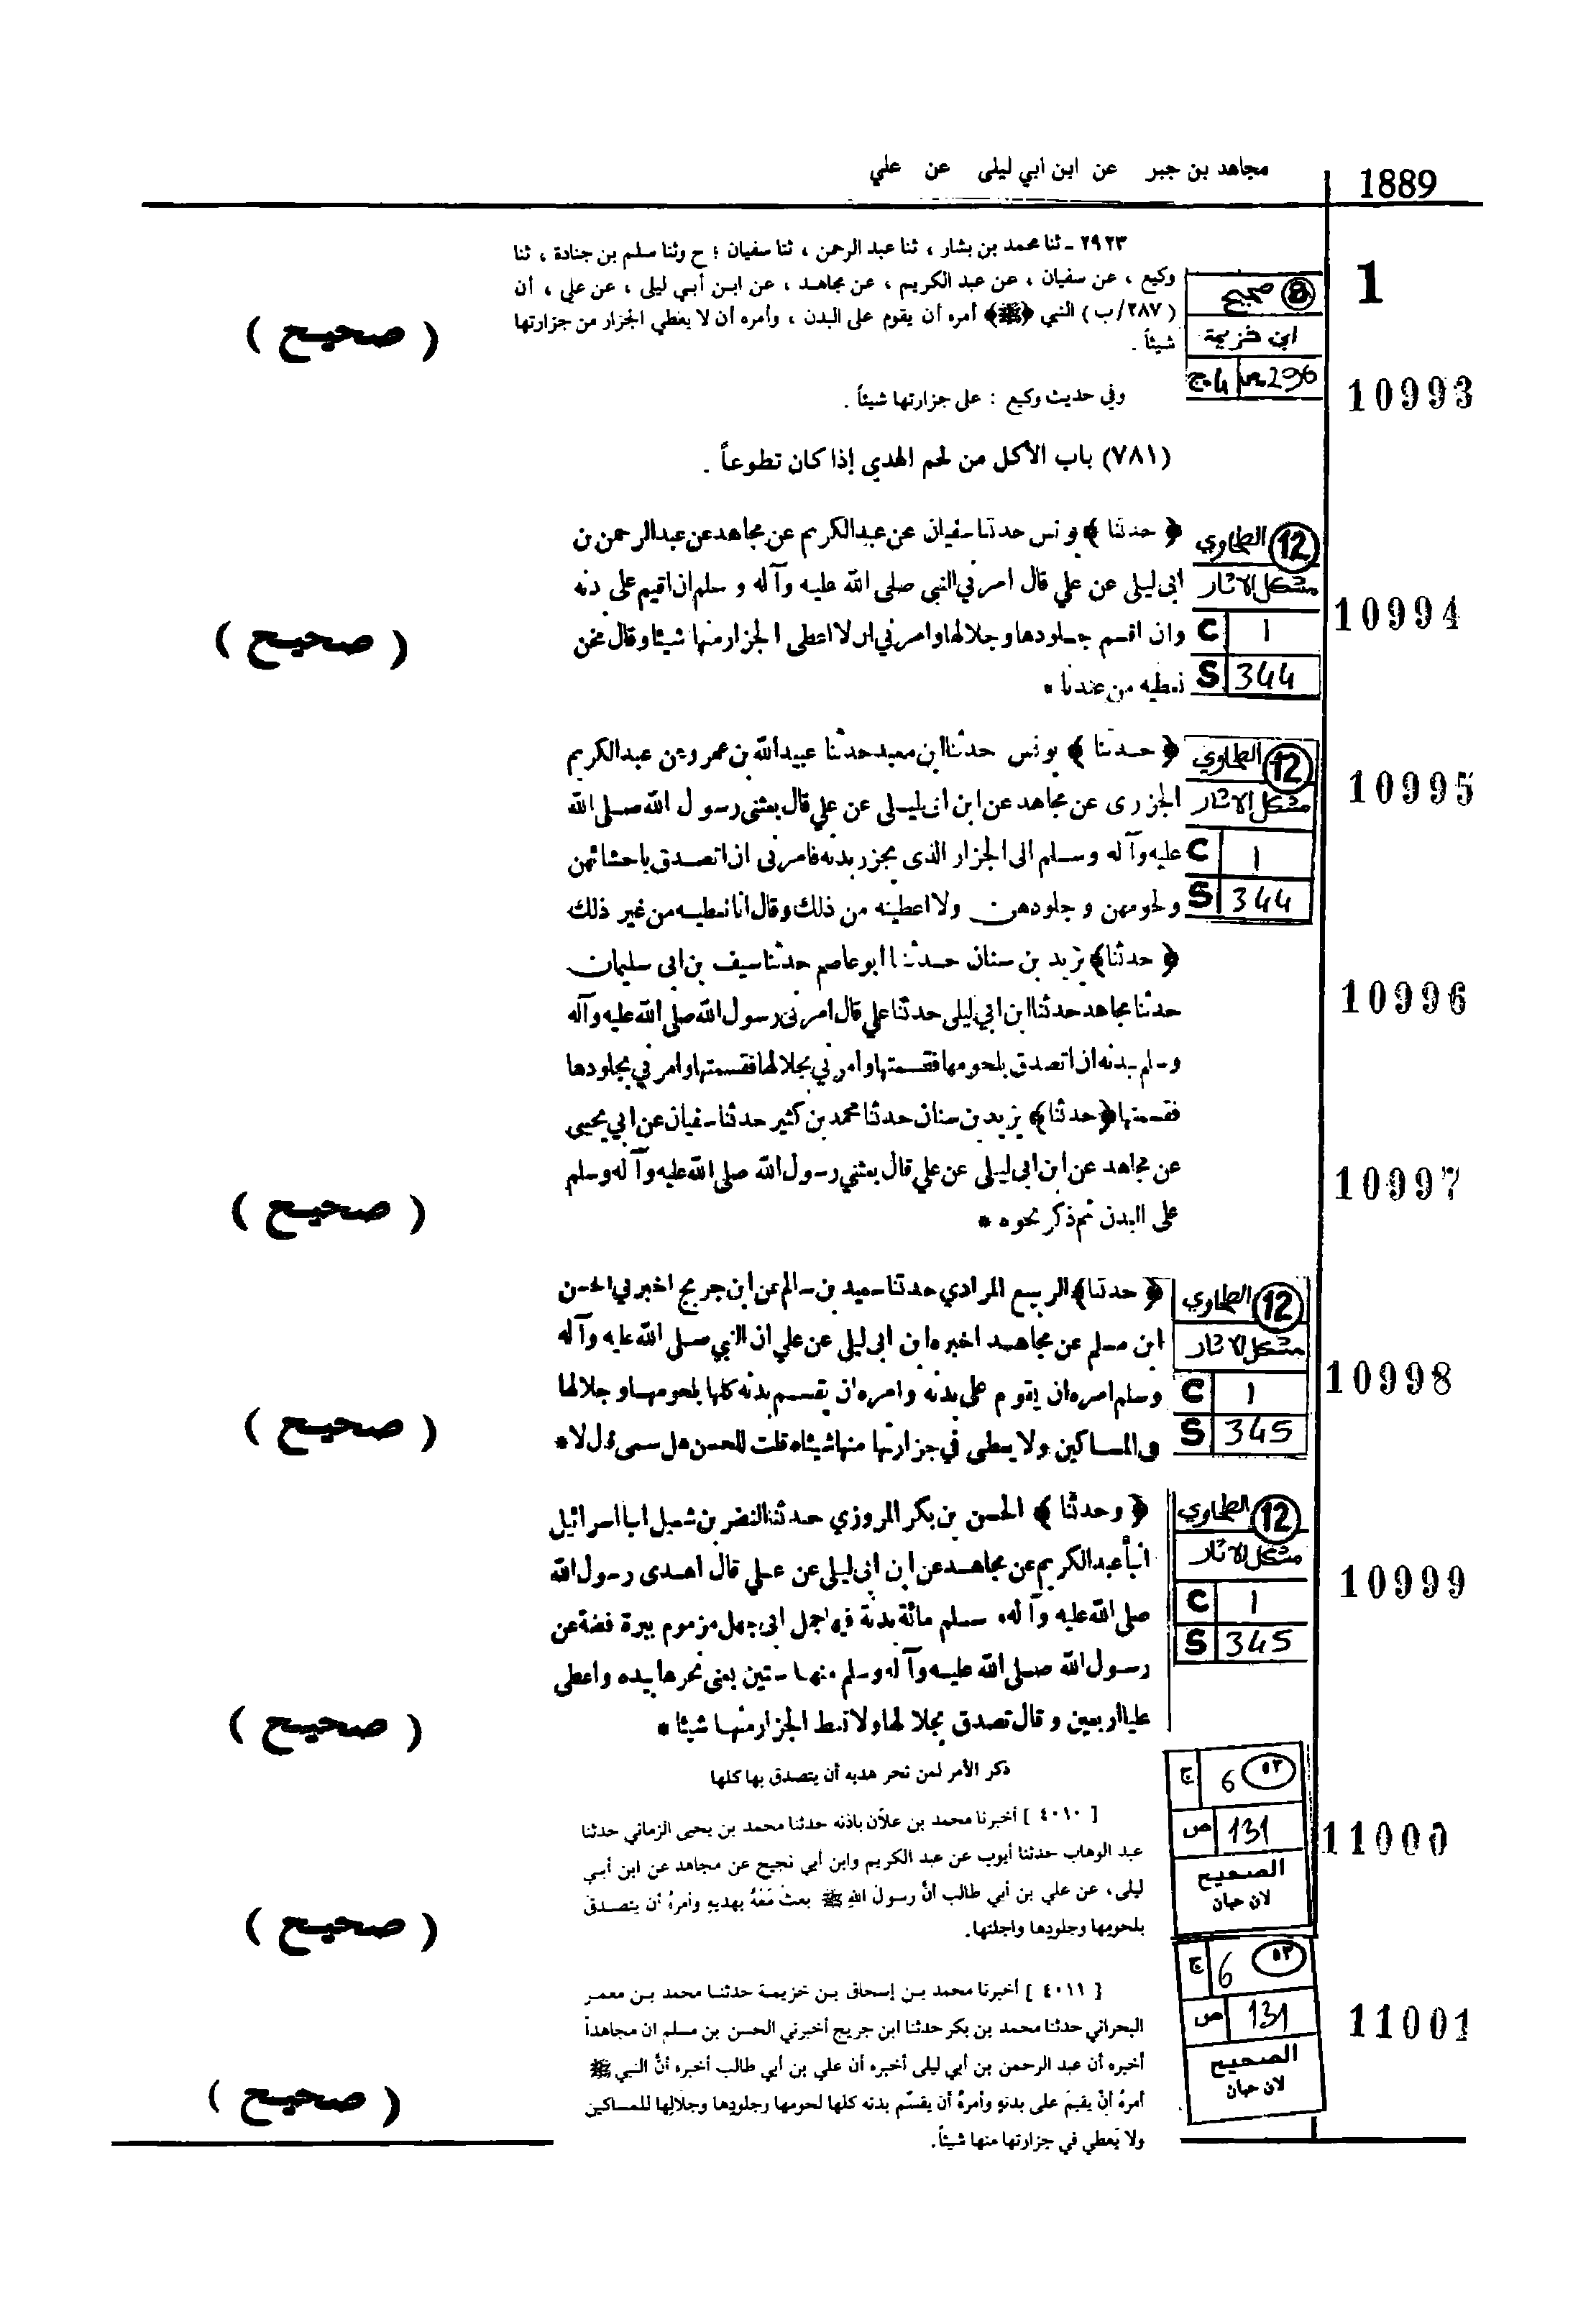 1889
مجاهد بن جبر عن ابن ابي ليلى عن علي
1
٢٩٢٣ ـ ثنا محمد بن بشار ، ثنا عبد الرحمن ، ثنا سفيان ؛ ح وثنا سلم بن جنادة ، ثنا
وكيع ، عن سفيان ، عن عبد الكريم ، عن مجاهد ، عن ابن أبي ليلى ، عن علي ، أن
( ٢٨٧/ب ) النبي ﴿ﷺ﴾ أمره أن يقوم على البدن ، وأمره أن لا يعطي الجزار من جزارتها
شيئاً .
8 صحيح
ابن خزيمة
296 ص 4 ج
( صحيح )
10993
وفي حديث وكيع : على جزارتها شيئاً .
(٧٨١) باب الأكل من لحم الهدي إذا كان تطوعاً .
﴿ حدثنا ﴾ يونس حدثنا سفيان عن عبدالكريم عن مجاهد عن عبدالرحمن بن
ابى ليلى عن علي قال امرني النبي صلى الله عليه وآله وسلم ان اقيم على بدنه
وان اقسم جلودها وجلالها وامرني ان لا اعطى الجزار منها شيئا وقال نحن
نعطيه من عندنا *
12 الطحاوي
مشكل الاثار
C ١
S 344
10994
( صحيح )
﴿ حدثنا ﴾ يونس حدثنا ابن معبد حدثنا عبيدالله بن عمرو عن عبدالكريم
الجزرى عن مجاهد عن ابن ابى ليلى عن علي قال بعثنى رسول الله صلى الله
عليه وآله وسلم الى الجزار الذى يجزر بدنه فامرنى ان اتصدق باحشائهن
ولحومهن وجلودهن ولا اعطينه من ذلك وقال انا نعطيه من غير ذلك
12 الطحاوي
مشكل الاثار
C ١
S 344
10995
﴿ حدثنا ﴾ يزيد بن سنان حدثنا ابو عاصم حدثنا سيف بن ابى سليمان
حدثنا مجاهد حدثنا ابن ابي ليلى حدثنا علي قال امرنى رسول الله صلى الله عليه وآله
وسلم ببدنه ان اتصدق بلحومها فقسمتها وامرني بجلالها فقسمتها وامرني بجلودها
10996
فقسمتها ﴿ حدثنا ﴾ يزيد بن سنان حدثنا محمد بن كثير حدثنا سفيان عن ابي يحيى
عن مجاهد عن ابن ابى ليلى عن علي قال بعثني رسول الله صلى الله عليه وآله وسلم
على البدن ثم ذكر نحوه *
10997
( صحيح )
﴿ حدثنا ﴾ الربيع المرادي حدثنا سعيد بن سالم عن ابن جريج اخبرني الحسن
ابن مسلم عن مجاهد اخبره ابن ابى ليلى عن علي ان النبي صلى الله عليه وآله
وسلم امره ان يقوم على بدنه وامره ان يقسم بدنه كلها لحومها وجلالها
في المساكين ولا يعطى في جزارتها منها شيئا ه قلت للحسن هل سمى قال لا *
12 الطحاوي
مشكل الاثار
C ١
S 345
10998
( صحيح )
﴿ وحدثنا ﴾ الحسن بن بكر المروزي حدثنا النضر بن شميل انبا اسرائيل
انبأ عبدالكريم عن مجاهد عن ابن ابى ليلى عن علي قال اهدى رسول الله
صلى الله عليه وآله وسلم مائة بدنة فيها جمل ابى جهل مزموم ببرة فضة عن
رسول الله صلى الله عليه وآله وسلم منها ستين يعنى نحرها بيده واعطى
عليا اربعين وقال تصدق بجلالها ولا تعط الجزار منها شيئا *
12 الطحاوي
مشكل الاثار
C ١
S 345
10999
( صحيح )
ذكر الأمر لمن نحر هديه أن يتصدق بها كلها
[ ٤٠١٠ ] أخبرنا محمد بن علان باذنه حدثنا محمد بن يحيى الزماني حدثنا
عبد الوهاب حدثنا أيوب عن عبد الكريم وابن أبي نجيح عن مجاهد عن ابن أبي
ليلى، عن علي بن أبي طالب أنَّ رسول اللهِ ﷺ بعثَ مَعَهُ بهديهِ وأمرهُ أن يتصدق
بلحومها وجلودِها وأجلتها.
٥٣ 6 ج
131 ص
الصحيح
لابن حبان
11000
( صحيح )
[ ٤٠١١ ] أخبرنا محمد بن إسحاق بن خزيمة حدثنا محمد بن معمر
البحراني حدثنا محمد بن بكر حدثنا ابن جريج أخبرني الحسن بن مسلم ان مجاهداً
أخبره أن عبد الرحمن بن أبي ليلى أخبره أن علي بن أبي طالب أخبره أنَّ النبي ﷺ
أمرهُ أنْ يقيمَ على بدنهِ وأمرهُ أن يقسّم بدنه كلها لحومها وجلودِها وجلالِها للمساكين
ولا يُعطي في جزارتها منها شيئاً.
٥٣ 6 ج
131 ص
الصحيح
لابن حبان
11001
( صحيح )